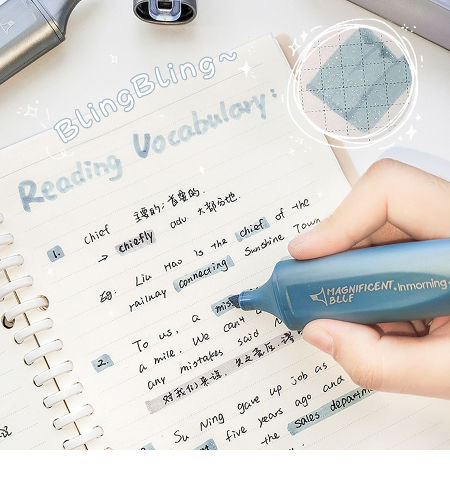 BlingBling~
Reading Vocabulary:
1. chief 主要的; 首要的.
→ chiefly adv. 大部分地.
Liu Hao is the chief of the
railway connecting Sunshine Town
2. To us, a mis
a mile. We can't
any mistakes said
对我们来说,失之毫厘,谬
Su Ning gave up job as
five years ago and
the sales department
MAGNIFICENT
BLUE
Inmorning